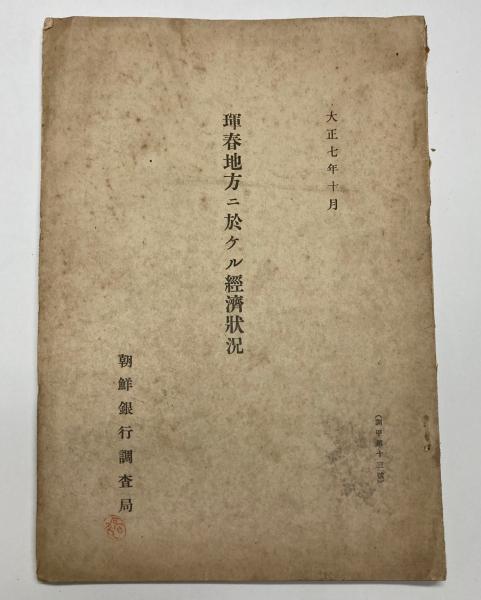 大正七年十月
琿春地方ニ於ケル經濟狀況
朝鮮銀行調査局